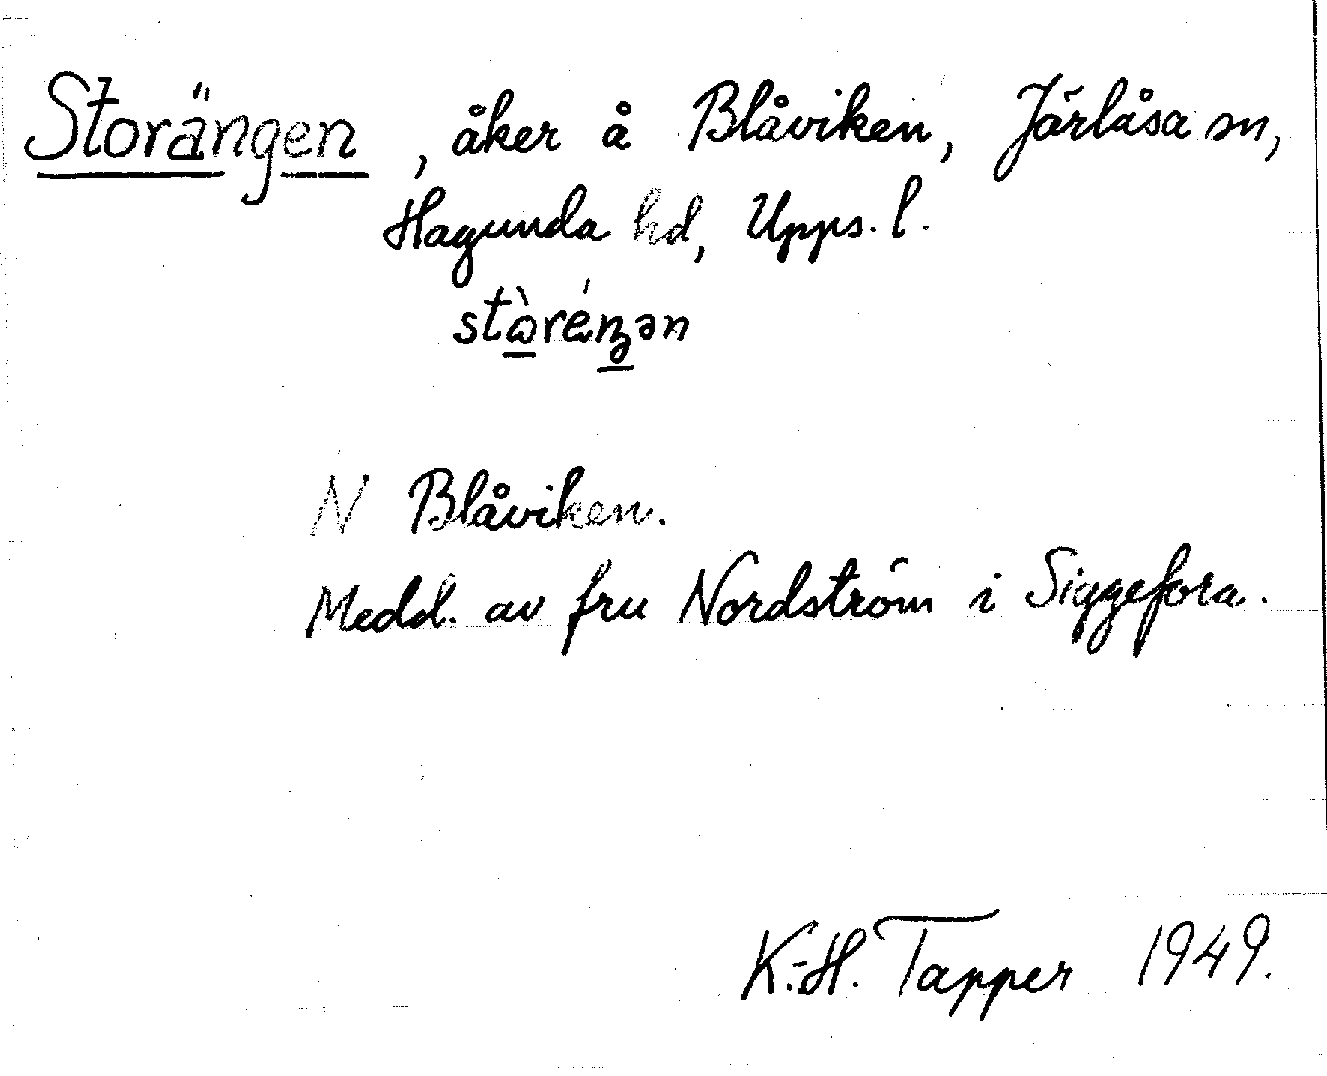 Storängen, åker å Blåviken, Järlåsa sn,
Hagunda hd, Upps. l.
stòréŋən
N Blåviken.
Medd. av fru Nordström i Siggefora.
K.-H. Tapper 1949.